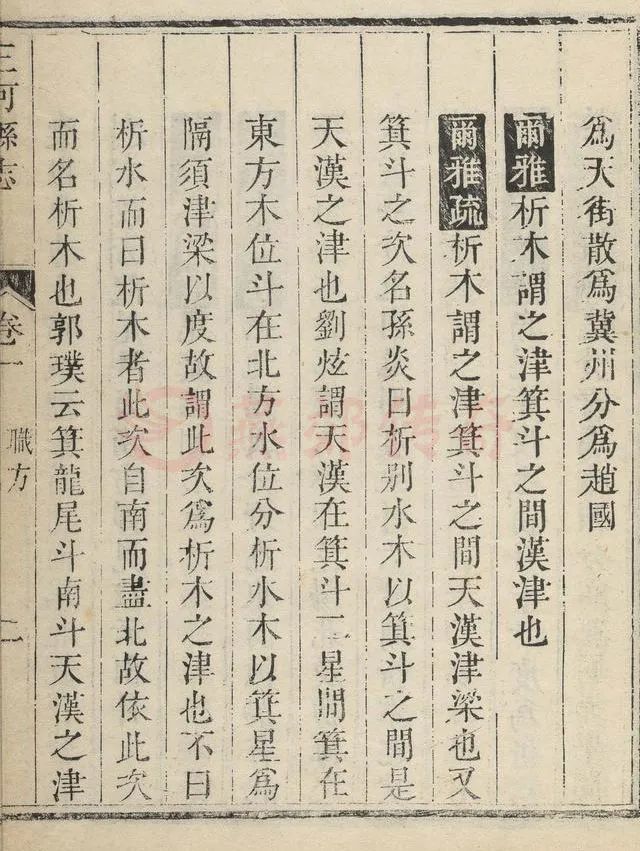 爲天街散爲冀州分爲趙國
爾雅析木謂之津箕斗之間漢津也
爾雅疏析木謂之津箕斗之間天漢津梁也又
箕斗之次名孫炎曰析别水木以箕斗之間是
天漢之津也劉炫謂天漢在箕斗二星間箕在
東方木位斗在北方水位分析水木以箕星爲
隔須津梁以度故謂此次爲析木之津也不曰
析水而曰析木者此次自南而盡北故依此次
而名析木也郭璞云箕龍尾斗南斗天漢之津
三河縣志
卷一
職方
二